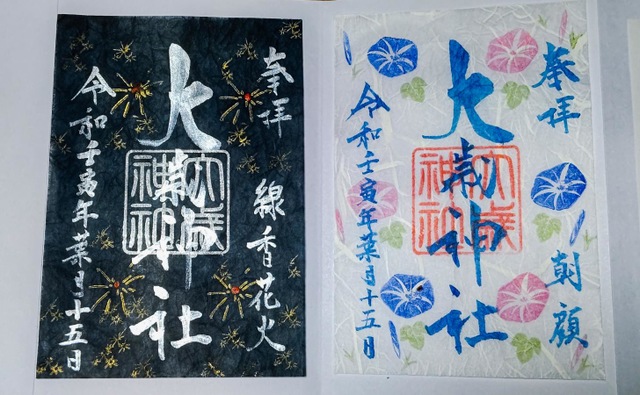 奉拝
線香花火
大歳神社
大歳神社
令和壬寅年葉月十五日
奉拝
朝顔
大歳神社
大歳神社
令和壬寅年葉月十五日